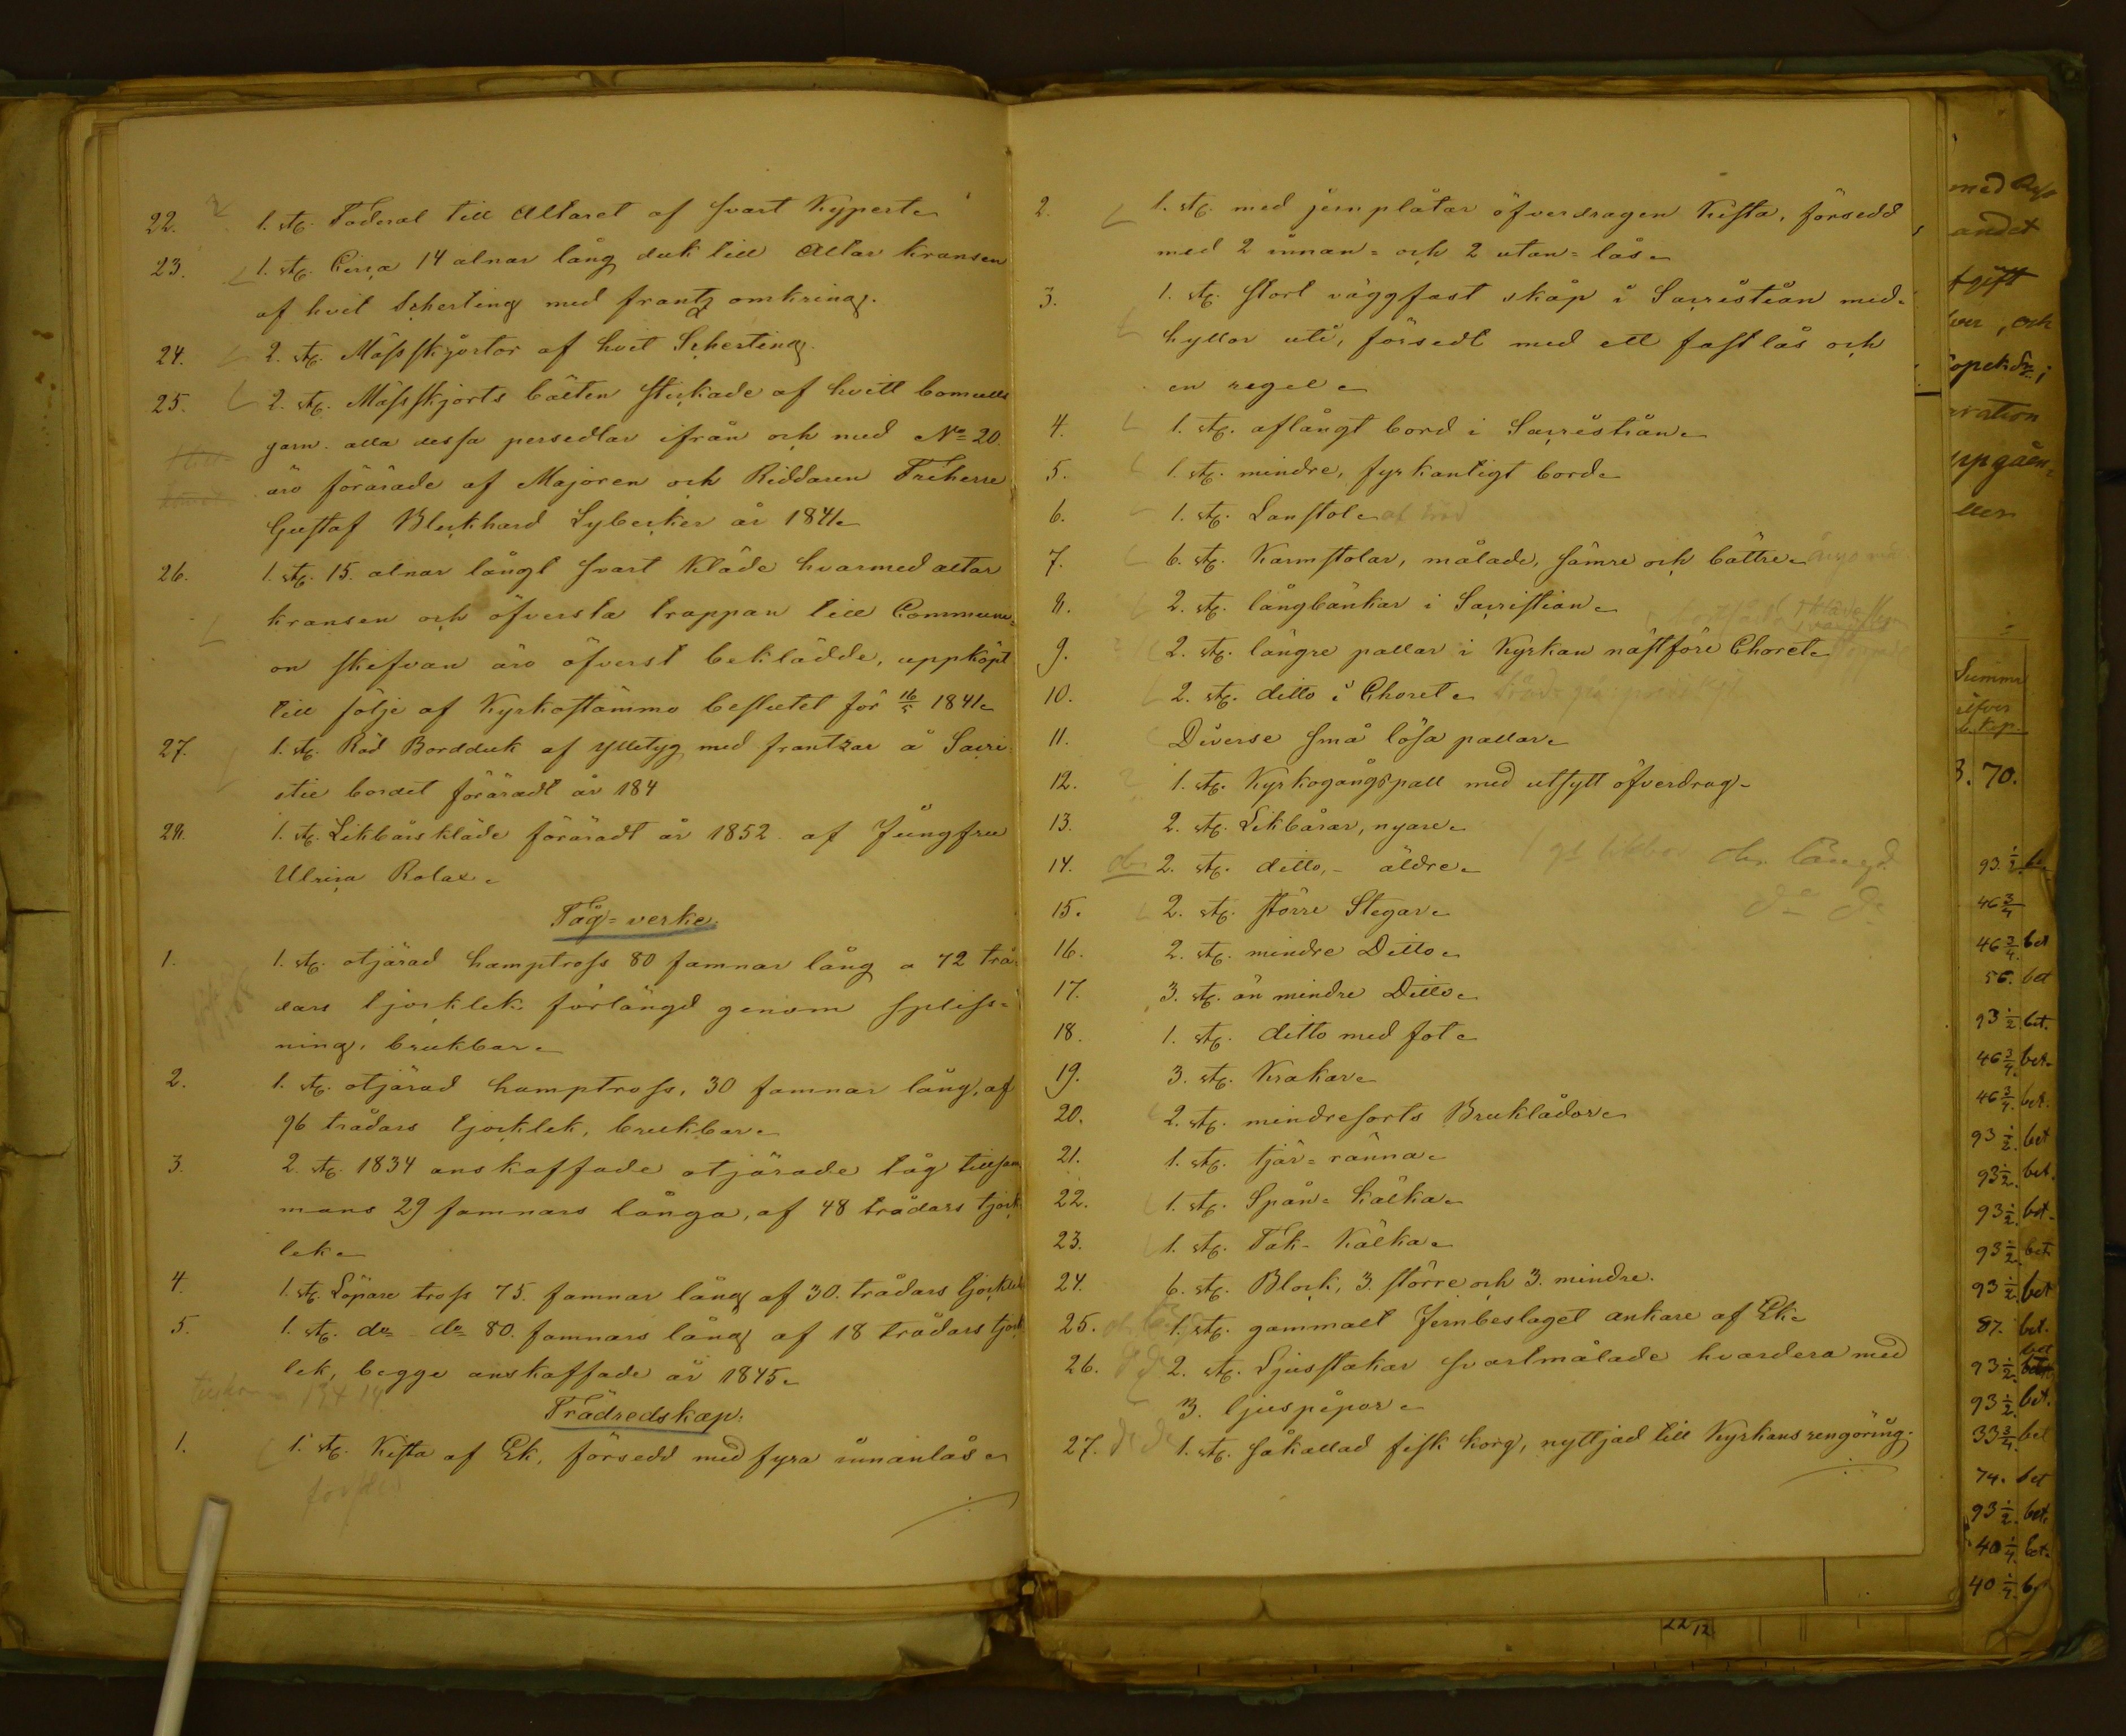 22. 1. st. Foderal till Altaret af svart Kypert
23. 1. st. Circa 14 alnar lång duk till Altar kransen
af hvit Scherting med frantz omkring.
24. 2. st. Mässskjortor af hvit Scherting
25. 2. st. Mässskjorts bälten stickade af hvitt bomulls
garn. alla dessa persedlar ifrån och med No 20.
äro förärade af Majoren och Riddaren Friherre
Gustaf Bleckhard Lybecker år 1841
26. 1. st. 15. alnar långt svart Kläde hvarmed altar
kransen och öfversta trappan till Communi=
on skifvan äro öfverst beklädde, uppköpt
till följe af Kyrkostämmo beslutet för 16/5 1841
27. 1. st. Röd Bordduk af ylletyg med frantzar å Sacri
stie bordet föräradt år 184
28. 1. st. Likbårskläde föräradt år 1852 af Jungfru
Ulrica Rolax
Tåg=verke
1. 1. st. otjärad hamptross 80 famnar lång a 72 trå=
dars tjocklek förlängd genom spliss=
ning, brukbar
2. 1. st. otjärad hamptross, 30 famnar lång, af
96 trådars tjocklek, brukbar
3. 2. st. 1834 anskaffade otjärade tåg tillsam
mans 29 famnars långa, af 48 trådars tjock
lek
4. 1. st. Löpare tross 75. famnar lång af 30. trådars tjocklek
5. 1. st. do do 80. famnars lång af 18 trådars tjock
lek, begge anskaffade år 1845
Trädredskap.
1. 1. st. Kista af Ek, försedd med fyra innanlås
2. 1. st. med jernplåtar öfverdragen Kista, försedd
med 2 innan= och 2 utan=lås
3. 1. st. stort väggfast skåp i Sacristian med
hyllor uti, försedt med ett fast lås och
en regel
4. 1. st. aflångt bord i Sacristian
5. 1. st. mindre, fyrkantigt bord
6. 1. st. Lanstol af träd
7. 6. st. Karmstolar, målade, sämre och bättre
8. 2. st. långbänkar i Sacristian
9. 2. st. längre pallar i Kyrkan nästföre Choret
10. 2. st. ditto i Choret
11. Diverse små lösa pallar
12. 1. st. Kyrkogångspall med utsytt öfverdrag
13. 2. st. Likbårar, nyare
14. 2. st. ditto, äldre
15. 2. st. större Stegar
16. 2. st. mindre Ditto
17. 3. st. än mindre Ditto
18. 1. st. ditto med fot
19. 3. st. Krakar
20. 2. st. mindresorts Bruklådor
21. 1. st. tjär=ränna
22. 1. st. Spån=kälka
23. 1. st. Tak-Kälka
24. 6. st. Block, 3. större och 3. mindre.
25. 1. st. gammalt Jernbeslaget ankare af Ek
26. 2. st. Ljusstakar svartmålade hvardera med
3. ljuspipor
27. 1. st. såkallad fisk korg, nyttjad till Kyrkans rengöring.
med
andet
ver, och
ration
uppgåen=
Summa
3. 70.
93 1/2
46 3/4
46 3/4 bet
56. bet
93 1/2 bet.
46 3/4 bet.
46 3/4 bet.
93 1/2 bet
93 1/2 bet.
93 1/2 bet.
93 1/2 bet.
93 1/2 bet
87. bet.
93 1/2 bet
93 1/2 bet.
33 3/4 bet
74. bet
93 1/2 bet.
40 1/4 bet.
40 1/4
22/12